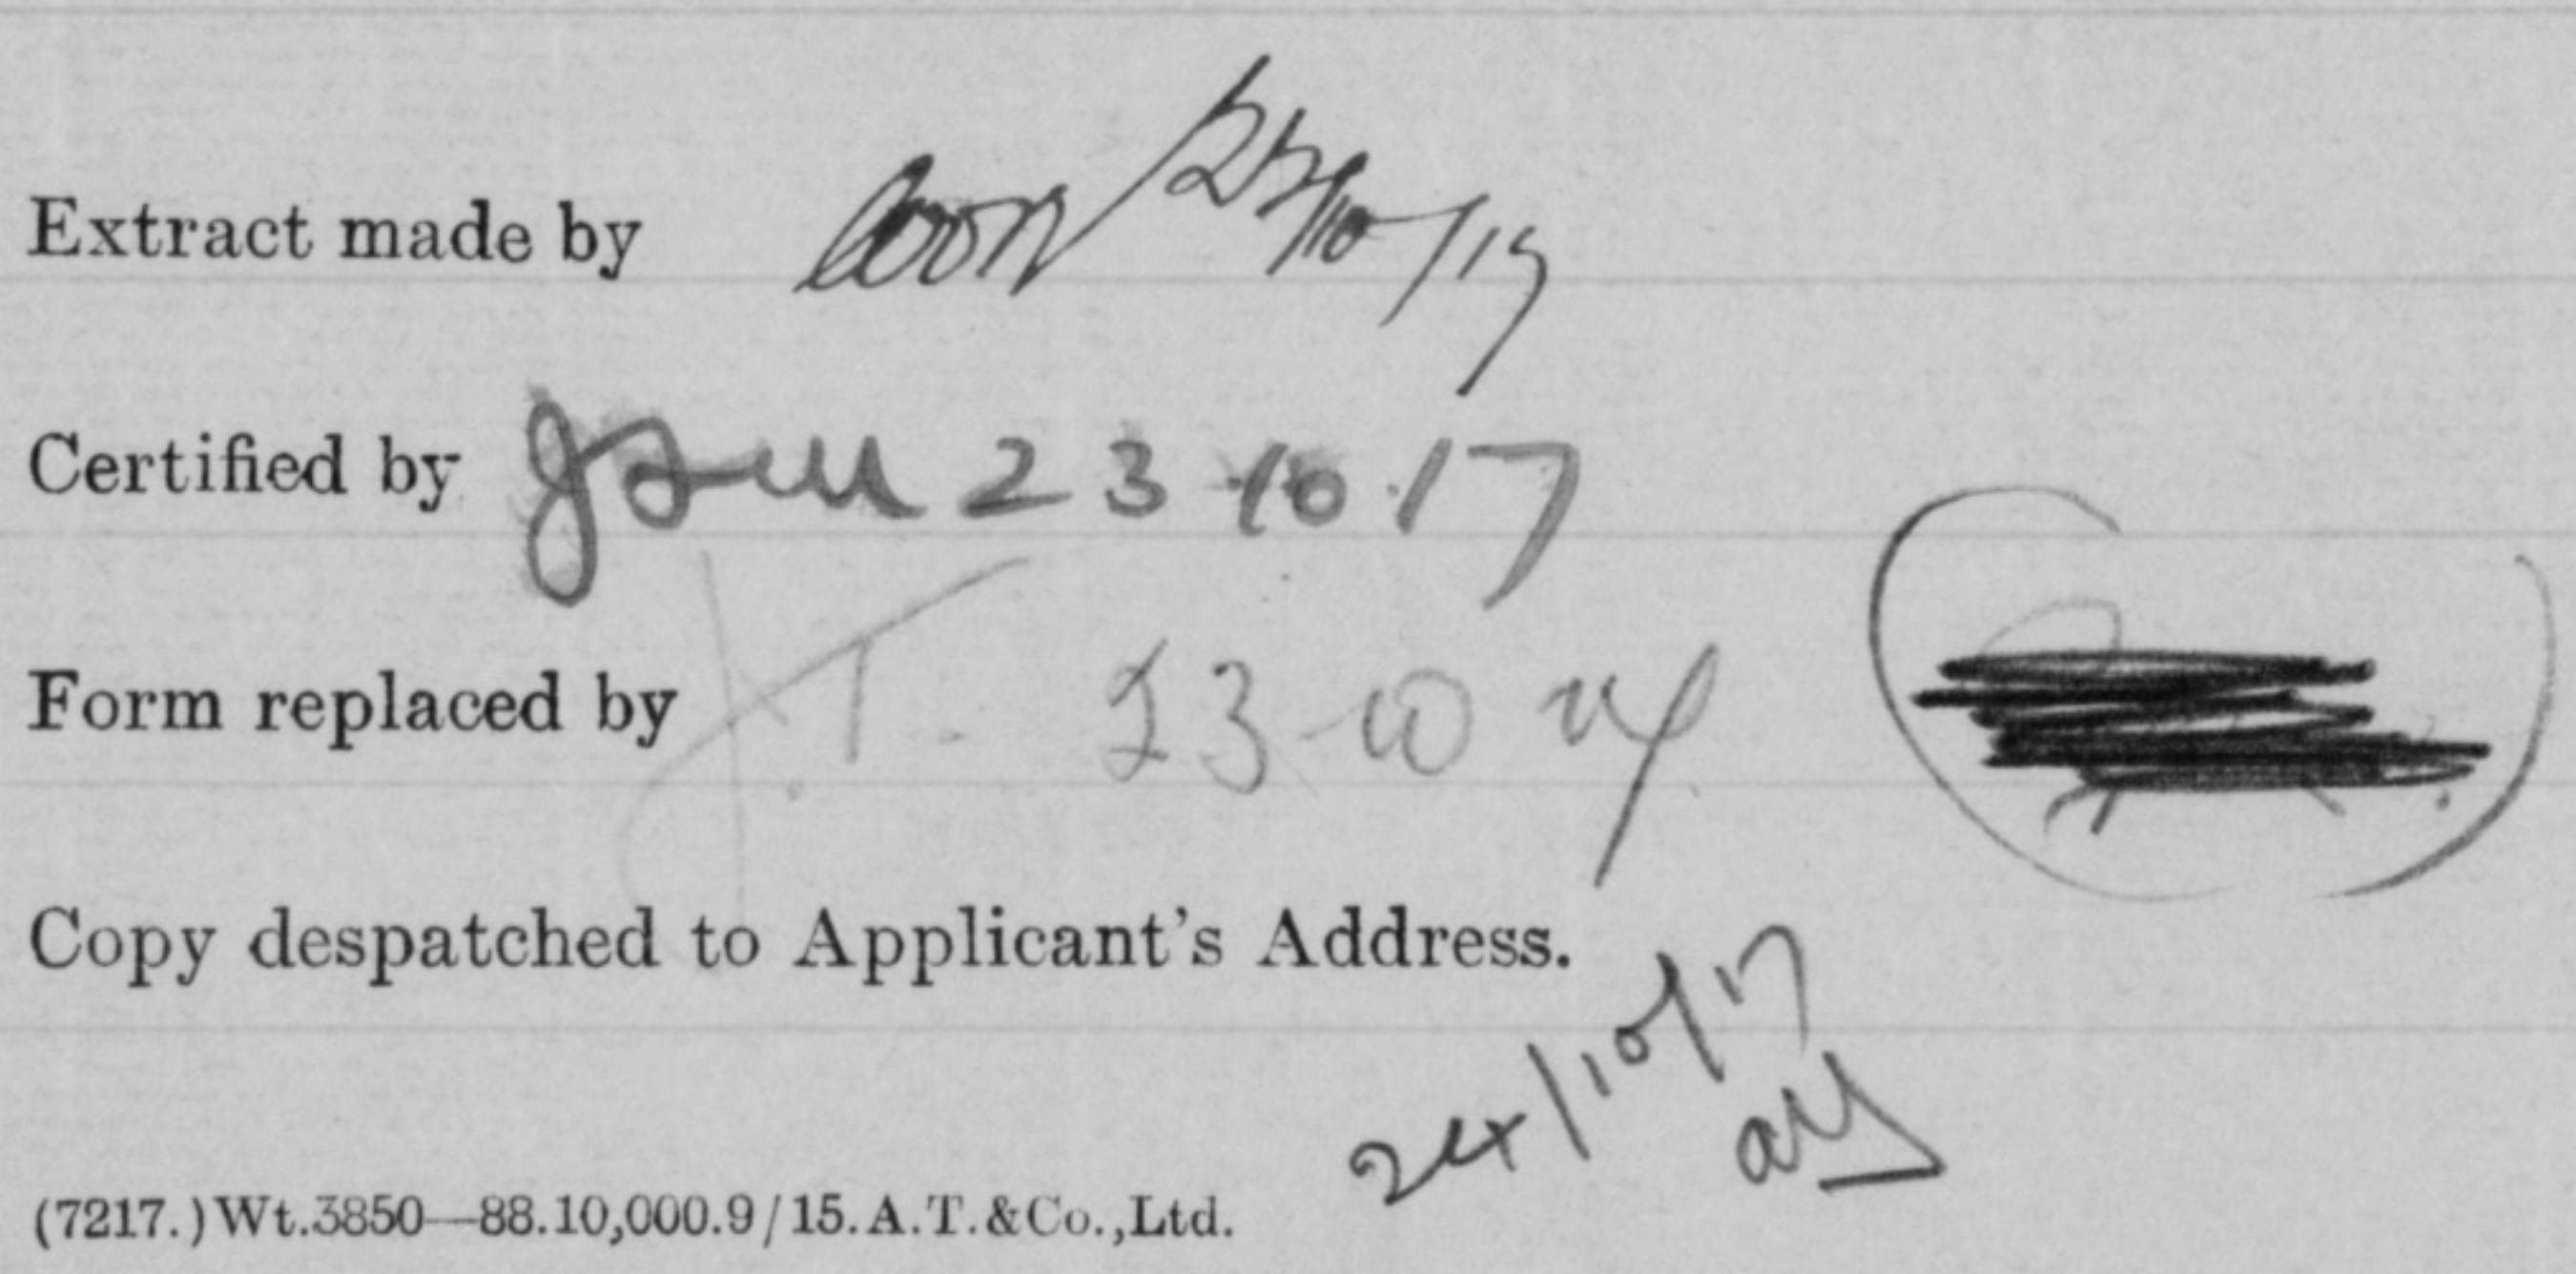 Extract made by
Certified by 23.10.17
Form replaced by J.T. 23-10-17
Copy despatched to Applicant's Address.
24/10/17
(7217.) Wt.3850—88.10,000.9/15.A.T.&Co.,Ltd.